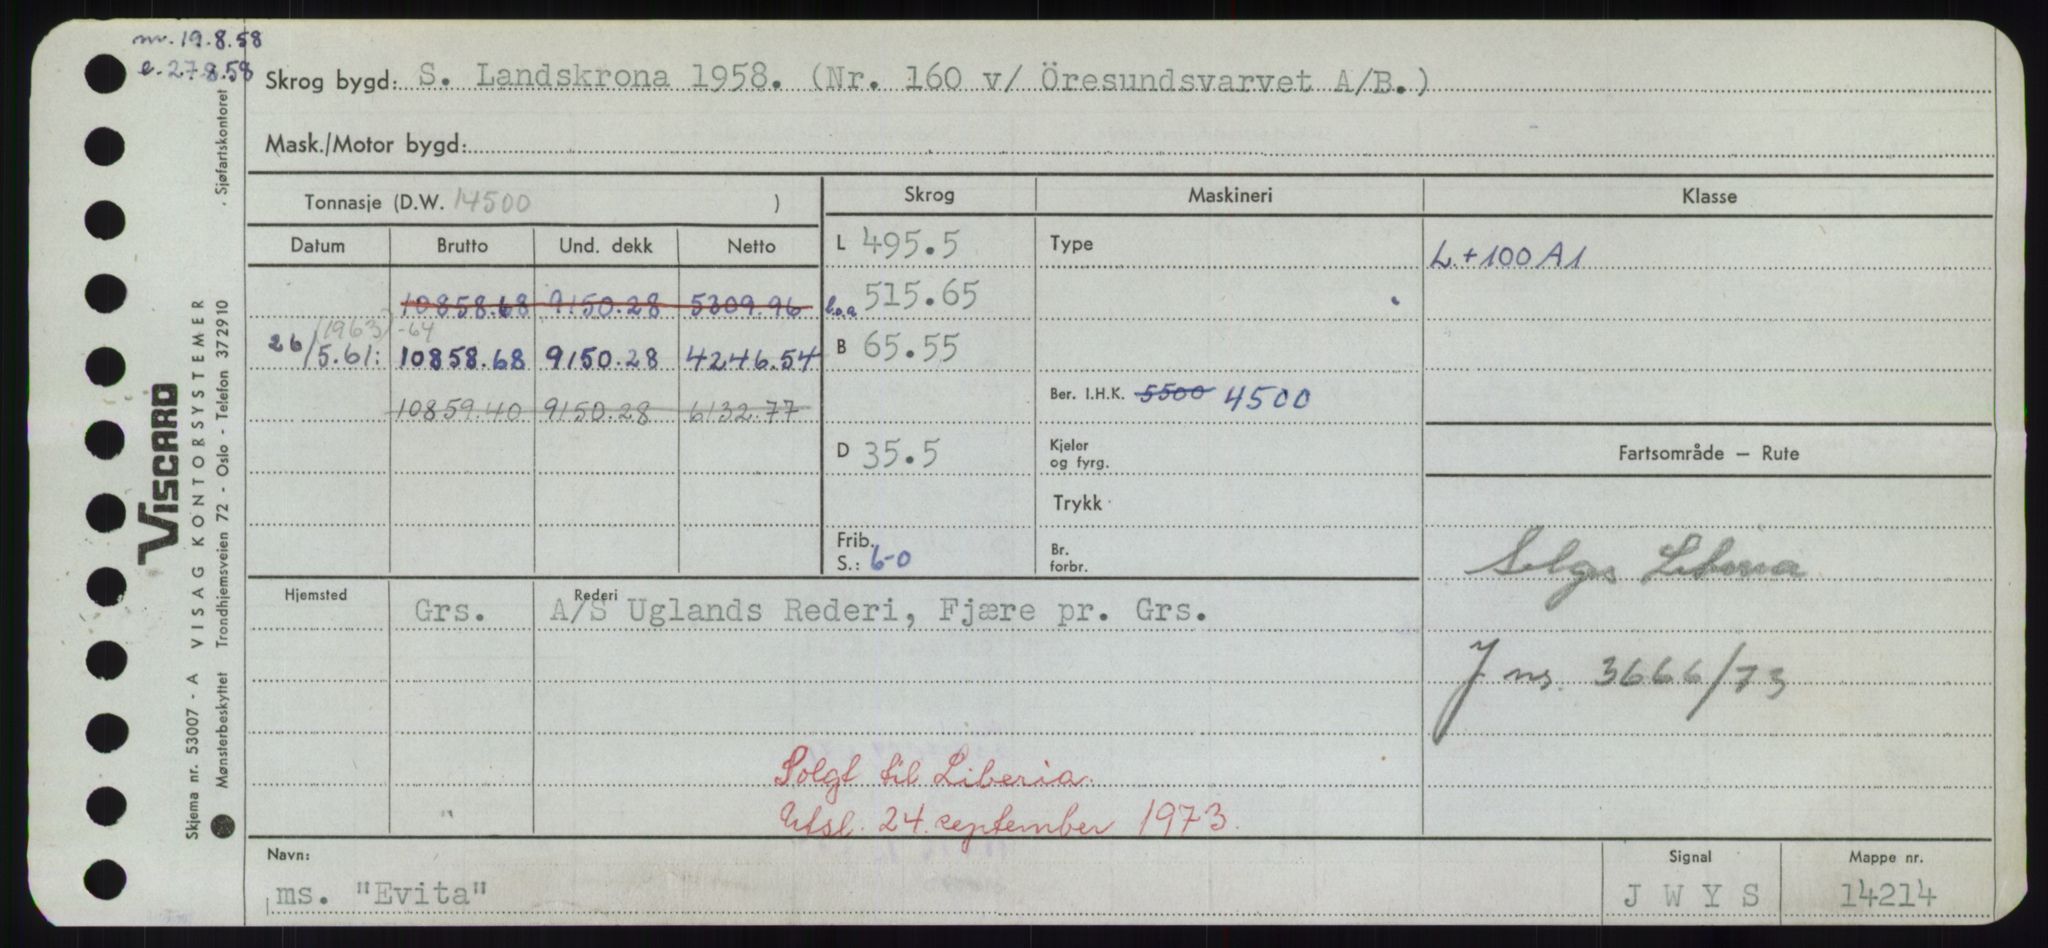 nv. 19.8.58
e. 27.8.58
Skrog bygd: S. Landskrona 1958. (Nr. 160 v/ Öresundsvarvet A/B.)
Mask./Motor bygd:
Tonnasje (D.W. 14500 )
Skrog
Maskineri
Klasse
Datum Brutto Und. dekk Netto
L 495.5
Type
L. + 100 A1
10858.68 9150.28 5309.96
l.o.a 515.65
(1963) -64
26/5.61: 10858.68 9150.28 4246.54
B 65.55
10859.40 9150.28 6132.77
Ber. I.H.K. 5500 4500
D 35.5
Kjeler og fyrg.
Fartsområde – Rute
Trykk
Frib. S.: 6-0
Br. forbr.
Selges Liberia
J nr. 3666/73
Hjemsted Grs.
Rederi A/S Uglands Rederi, Fjære pr. Grs.
Solgt til Liberia.
Utsl. 24. september 1973.
Navn: ms. "Evita"
Signal J W Y S
Mappe nr. 14214
VISCARD
VISAG KONTORSYSTEMER
Skjema nr. 53007 - A
Mønsterbeskyttet Trondhjemsveien 72 - Oslo - Telefon 372910 . Sjøfartskontoret